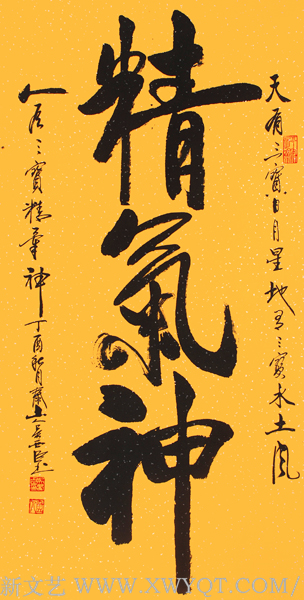 精氣神
天有三寶日月星地有三寶水土風
人有三寶精氣神丁酉秋月
新文艺 WWW.XWYQT.COM/